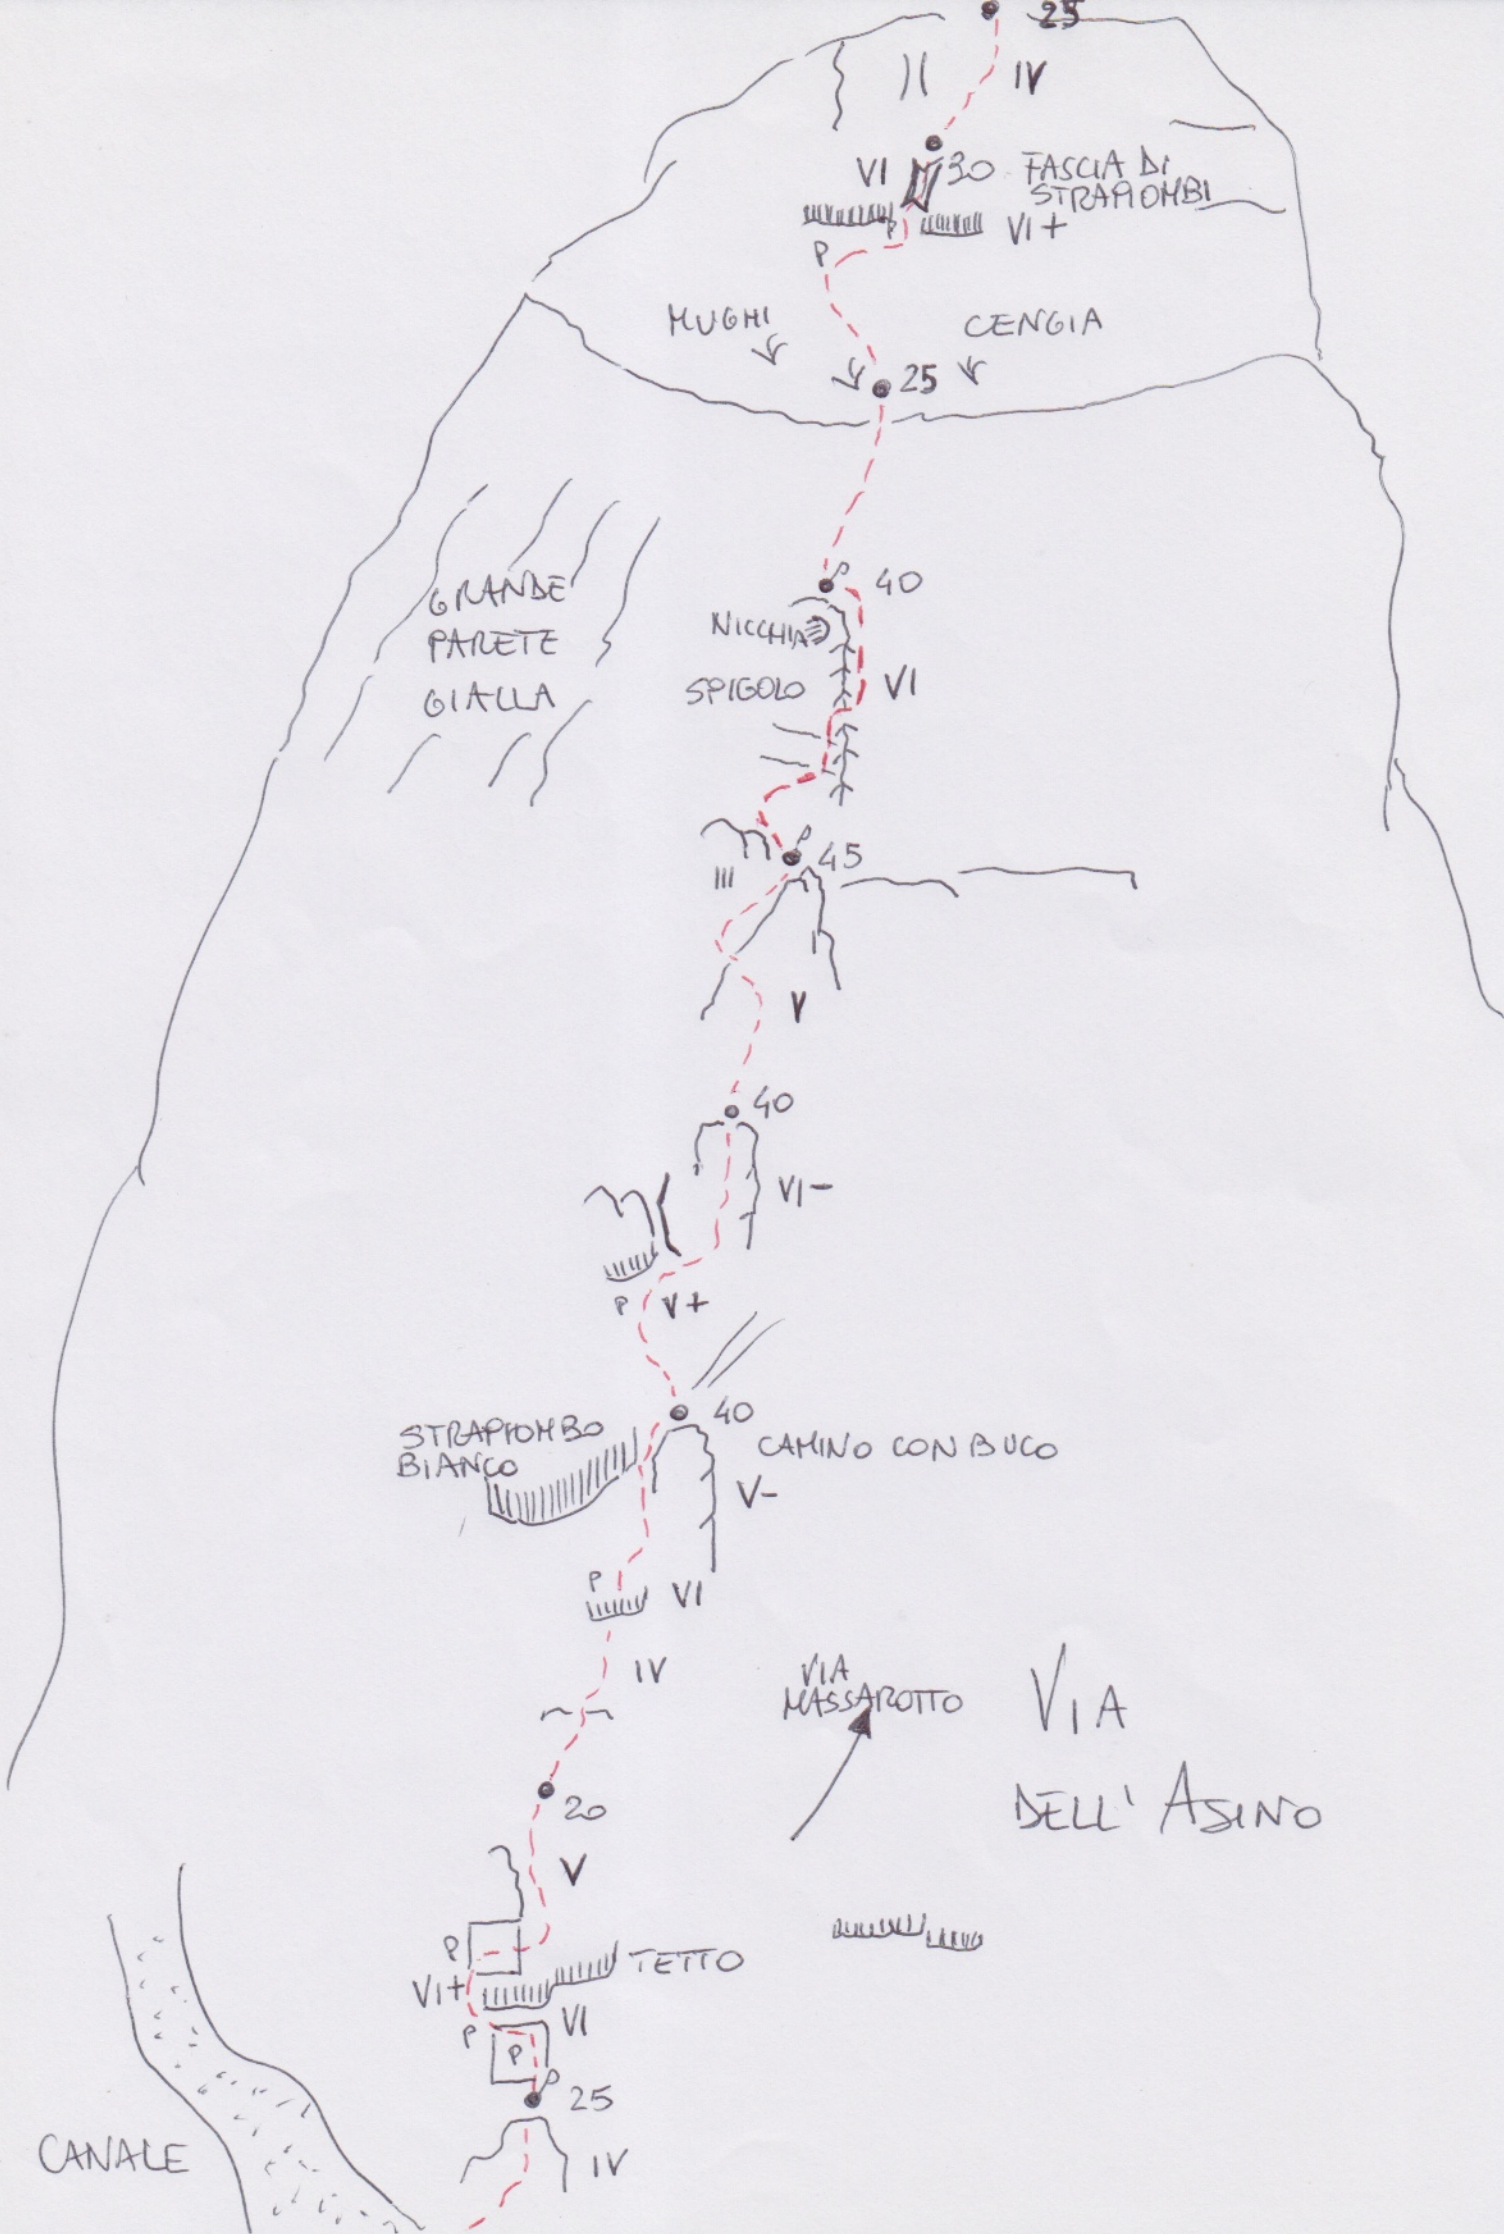 25
IV
VI 30 FASCIA DI
STRAPIOMBI
VI+
P
P
MUGHI
CENGIA
25
P
40
GRANDE
PARETE
GIALLA
NICCHIA
SPIGOLO
VI
P
45
III
V
40
VI-
P V+
40
STRAPIOMBO
BIANCO
CAMINO CON BUCO
V-
P
VI
IV
VIA
MASSAROTTO
VIA
DELL' ASINO
20
V
P
VI+
TETTO
VI
P
P
P
25
CANALE
IV